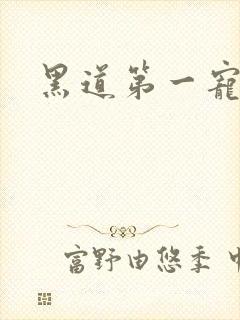 黑道第一寵
富野由悠季